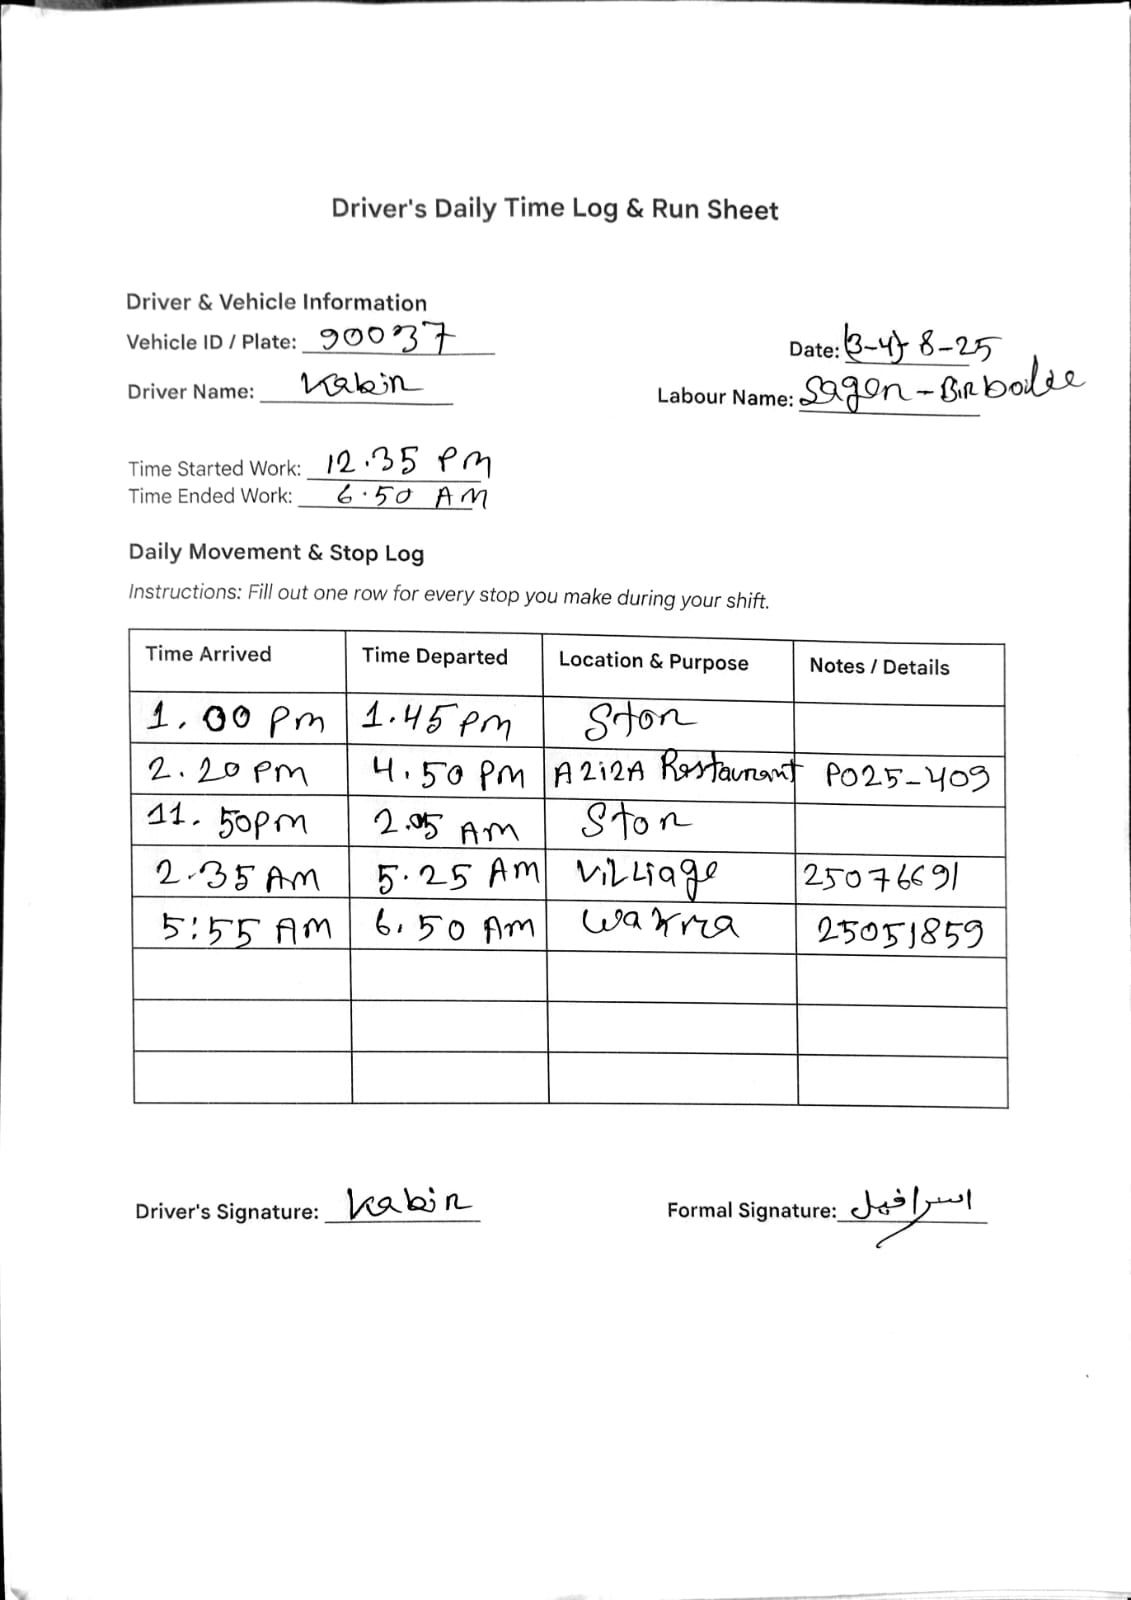 Driver's Daily Time Log & Run Sheet
Driver & Vehicle Information
Vehicle ID / Plate: 90037
Date: (3-4) 8-25
Driver Name: Kabir
Labour Name: Sagor - Bir
Time Started Work: 12.35 PM
Time Ended Work: 6.50 AM
Daily Movement & Stop Log
Instructions: Fill out one row for every stop you make during your shift.
Time Arrived Time Departed Location & Purpose Notes / Details
1.00 PM 1.45 PM Stor
2.20 PM 4.50 PM A2i2A Restaurant PO25-409
11.50PM 2.05 AM Stor
2.35 AM 5.25 AM Villiage 25076691
5:55 AM 6.50 AM Wakra 25051859
Driver's Signature: Kabir
Formal Signature: اسرافيل